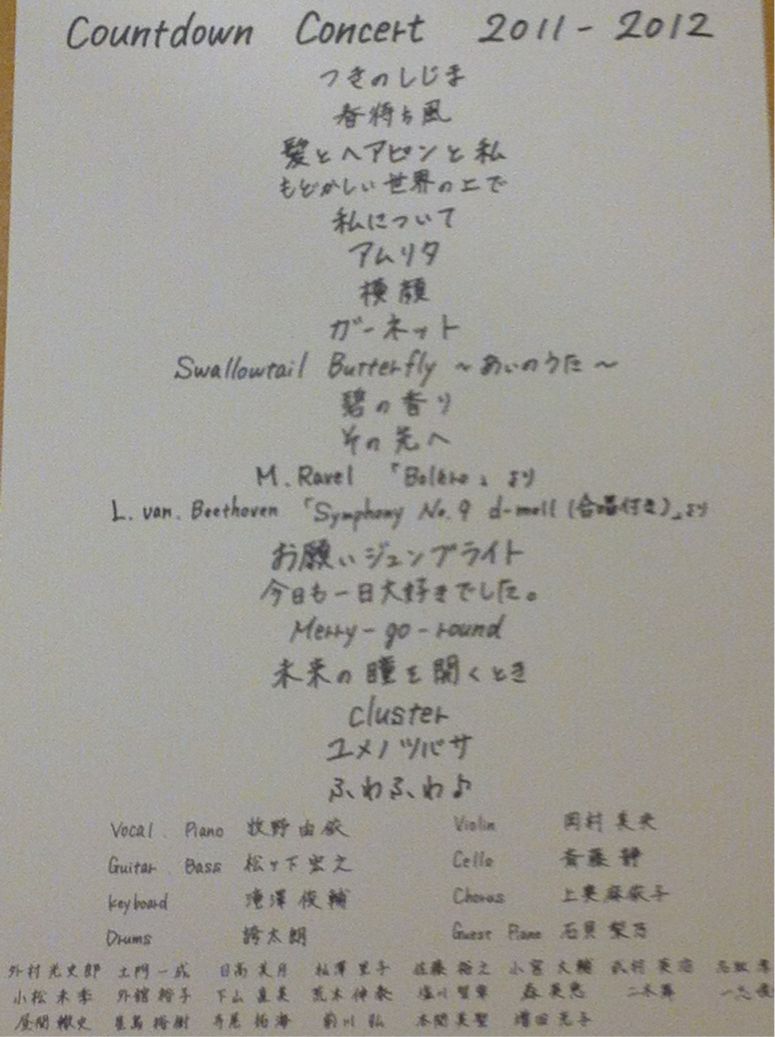 Countdown Concert 2011-2012
つきのしじま
春待ち風
髪とヘアピンと私
もどかしい世界の上で
私について
アムリタ
横顔
ガーネット
Swallowtail Butterfly ～あいのうた～
碧の香り
その先へ
M. Ravel 「Boléro」より
L. van. Beethoven 「Symphony No.9 d-moll (合唱付き)」より
お願いジュンブライト
今日も一日大好きでした。
Merry-go-round
未来の瞳を開くとき
cluster
ユメノツバサ
ふわふわ♪
Vocal. Piano 牧野由依 Violin 岡村美央
Guitar. Bass 松ヶ下宏之 Cello 斎藤静
keyboard 滝澤俊輔 Chorus 上栗麻依子
Drums 誇太朗 Guest Piano 石貝梨乃
土門一成 日高美月 松澤里子 佐藤裕之 小宮大輔
小松未季 外舘裕子 下山直美 荒木伸泰 塩川智章 森美恵
前川弘 本間美聖 増田光子